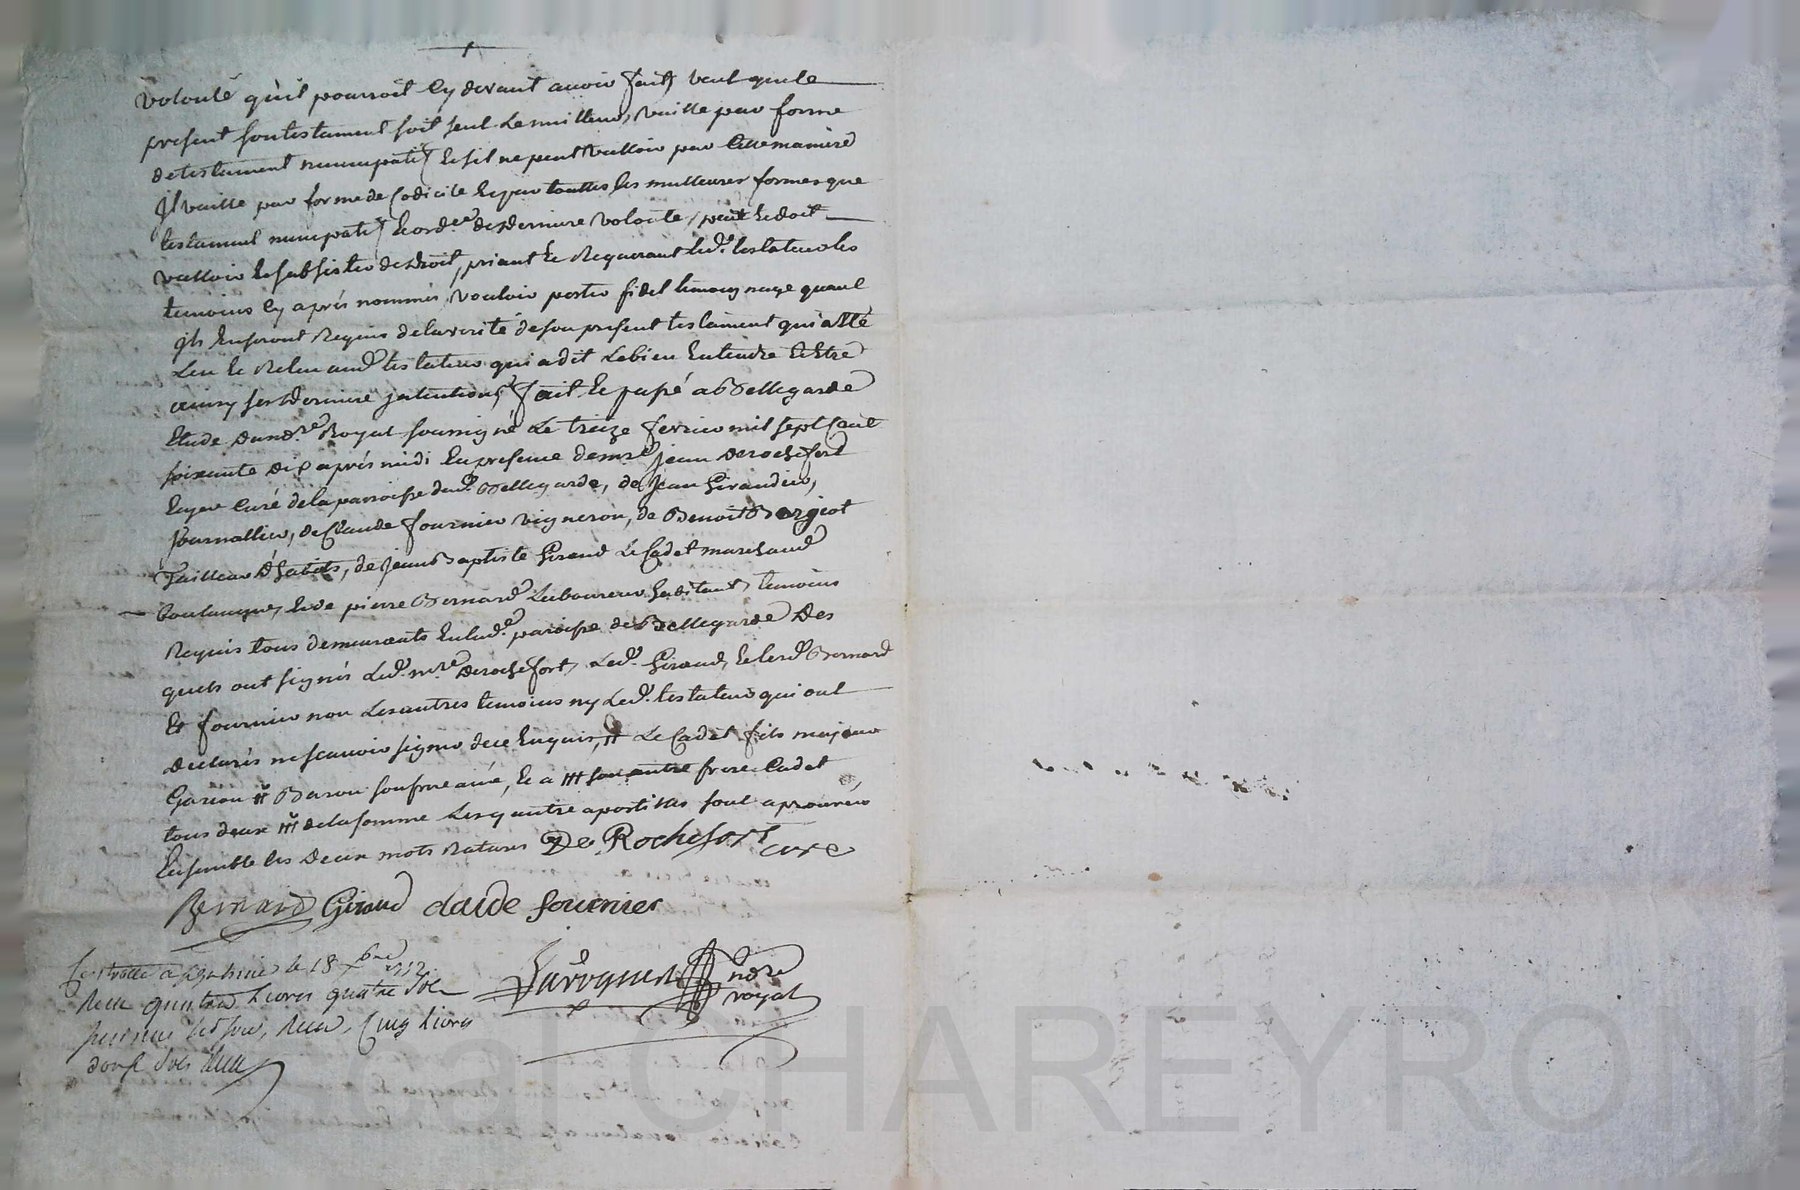 volonté qu'il pourroit cy devant avoir fait, veut que le
present son testament soit seul le meilleur, vaille par forme
de testament nuncupatif et s'il ne peut valloir par cette maniere
Il vaille par forme de codicile et par touttes les meilleures formes que
testament nuncupatif et ordre de derniere volonté, peut et doit
valloir et subsister de droit, priant et requerant led. testateur les
temoins cy aprés nommés vouloir porter fidel temoignage quand
ils en seront requis de la verité de son present testament qui a été
Leu et releu aud testateur qui a dit le bien entendre et étre
ainsy ses derniere intentions, fait et passé a Bellegarde
Etude du nore Royal soussigné Le treize fevrier mil sept cent
soixante dix aprés midi en presence de mre jean Derochefort
curé de la parroisse dud. Bellegarde, de jean Giraudier,
journallier, de Claude fournier vigneron, de Benoit Bargiot
Tailleur d'habits, de jean Baptiste Giraud Le Cadet marchand
boulanger, et de pierre Bernard Laboureur habitant, temoins
Requis tous demeurants en lade. paroisse de Bellegarde Des
quels ont signés Led. mre. Derochefort, Led. Giraud, et lesd. Bernard
Et fournier non Les autres temoins ny Led. testateur qui ont
declarés ne scavoir signer de ce enquis, # Le Cadet fils majeur
Garcon # Baron son frere ainé, et a ### son autre frere Cadet
tous deux ### de la somme Les quatre apostilles sont aprouvées
Ensemble les deux mots raturés De Rochefort curé
Bernard Giraud claude fournier
nore
royal
Controllé a le 18
Receu Livres quatre sols
Receu, Cinq livres
sols
CHAREYRON